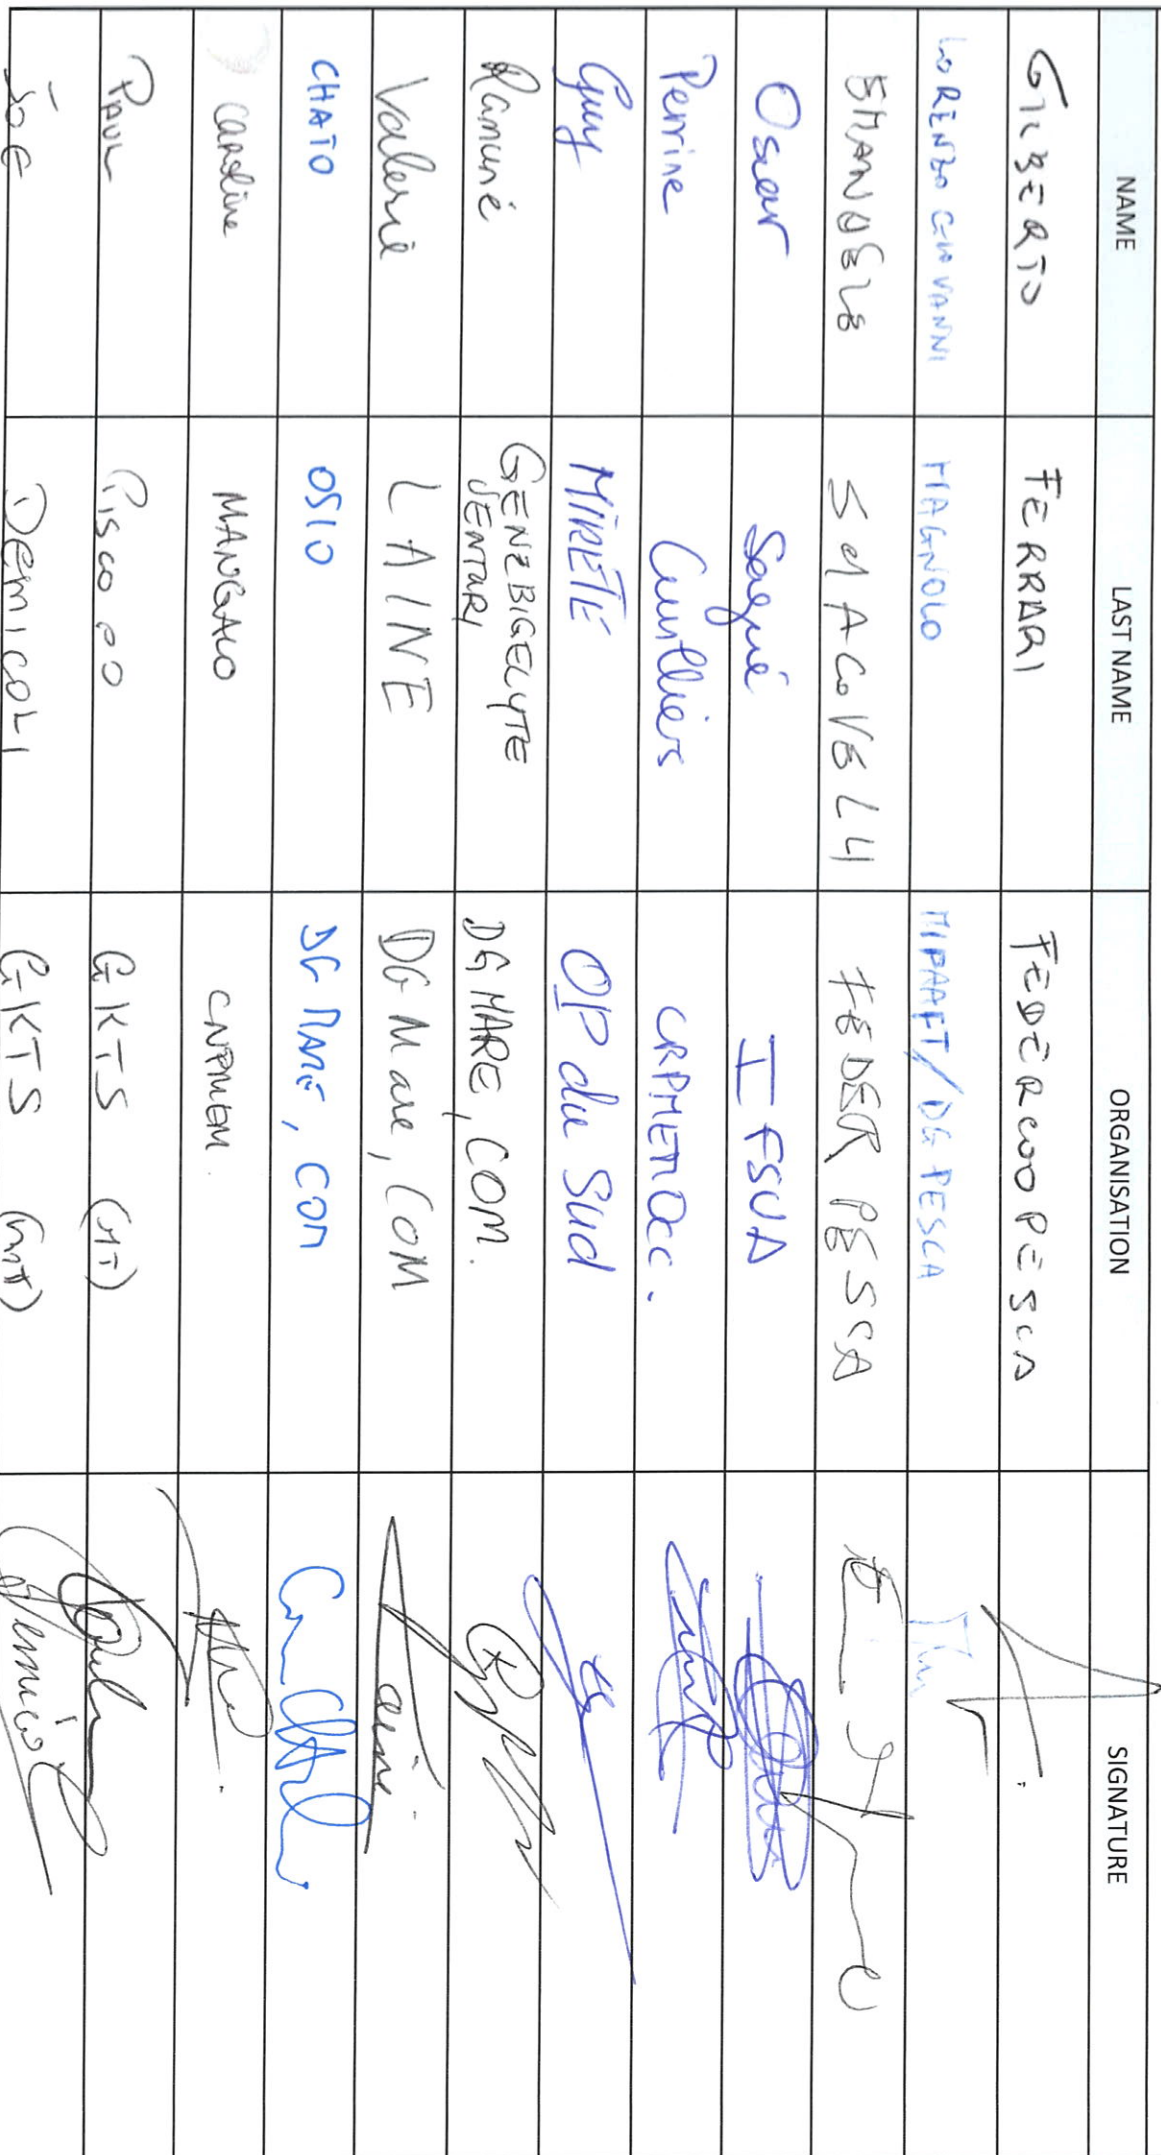 NAME LAST NAME ORGANISATION SIGNATURE
GILBERTO FERRARI FEDERCOOPESCA
LORENZO GIOVANNI MAGNOLO MIPAAFT/DG PESCA
EMANUELE SMACOVELLI FEDER PESCA
Oscar Sagué IFSUA
Perrine Cuvilliers CRPMEM Occ.
Guy MIRETE OP du Sud
Ramuné GENZBIGELYTE DG MARE, COM.
VENTURY
Valerie LAINE DG Mare, COM
CHATO OSIO DG MARE, COM
Caroline MANGALO CNPMEM.
PAUL Piscopo GKTS (MT)
JOE DEMICOLI GKTS (MT)